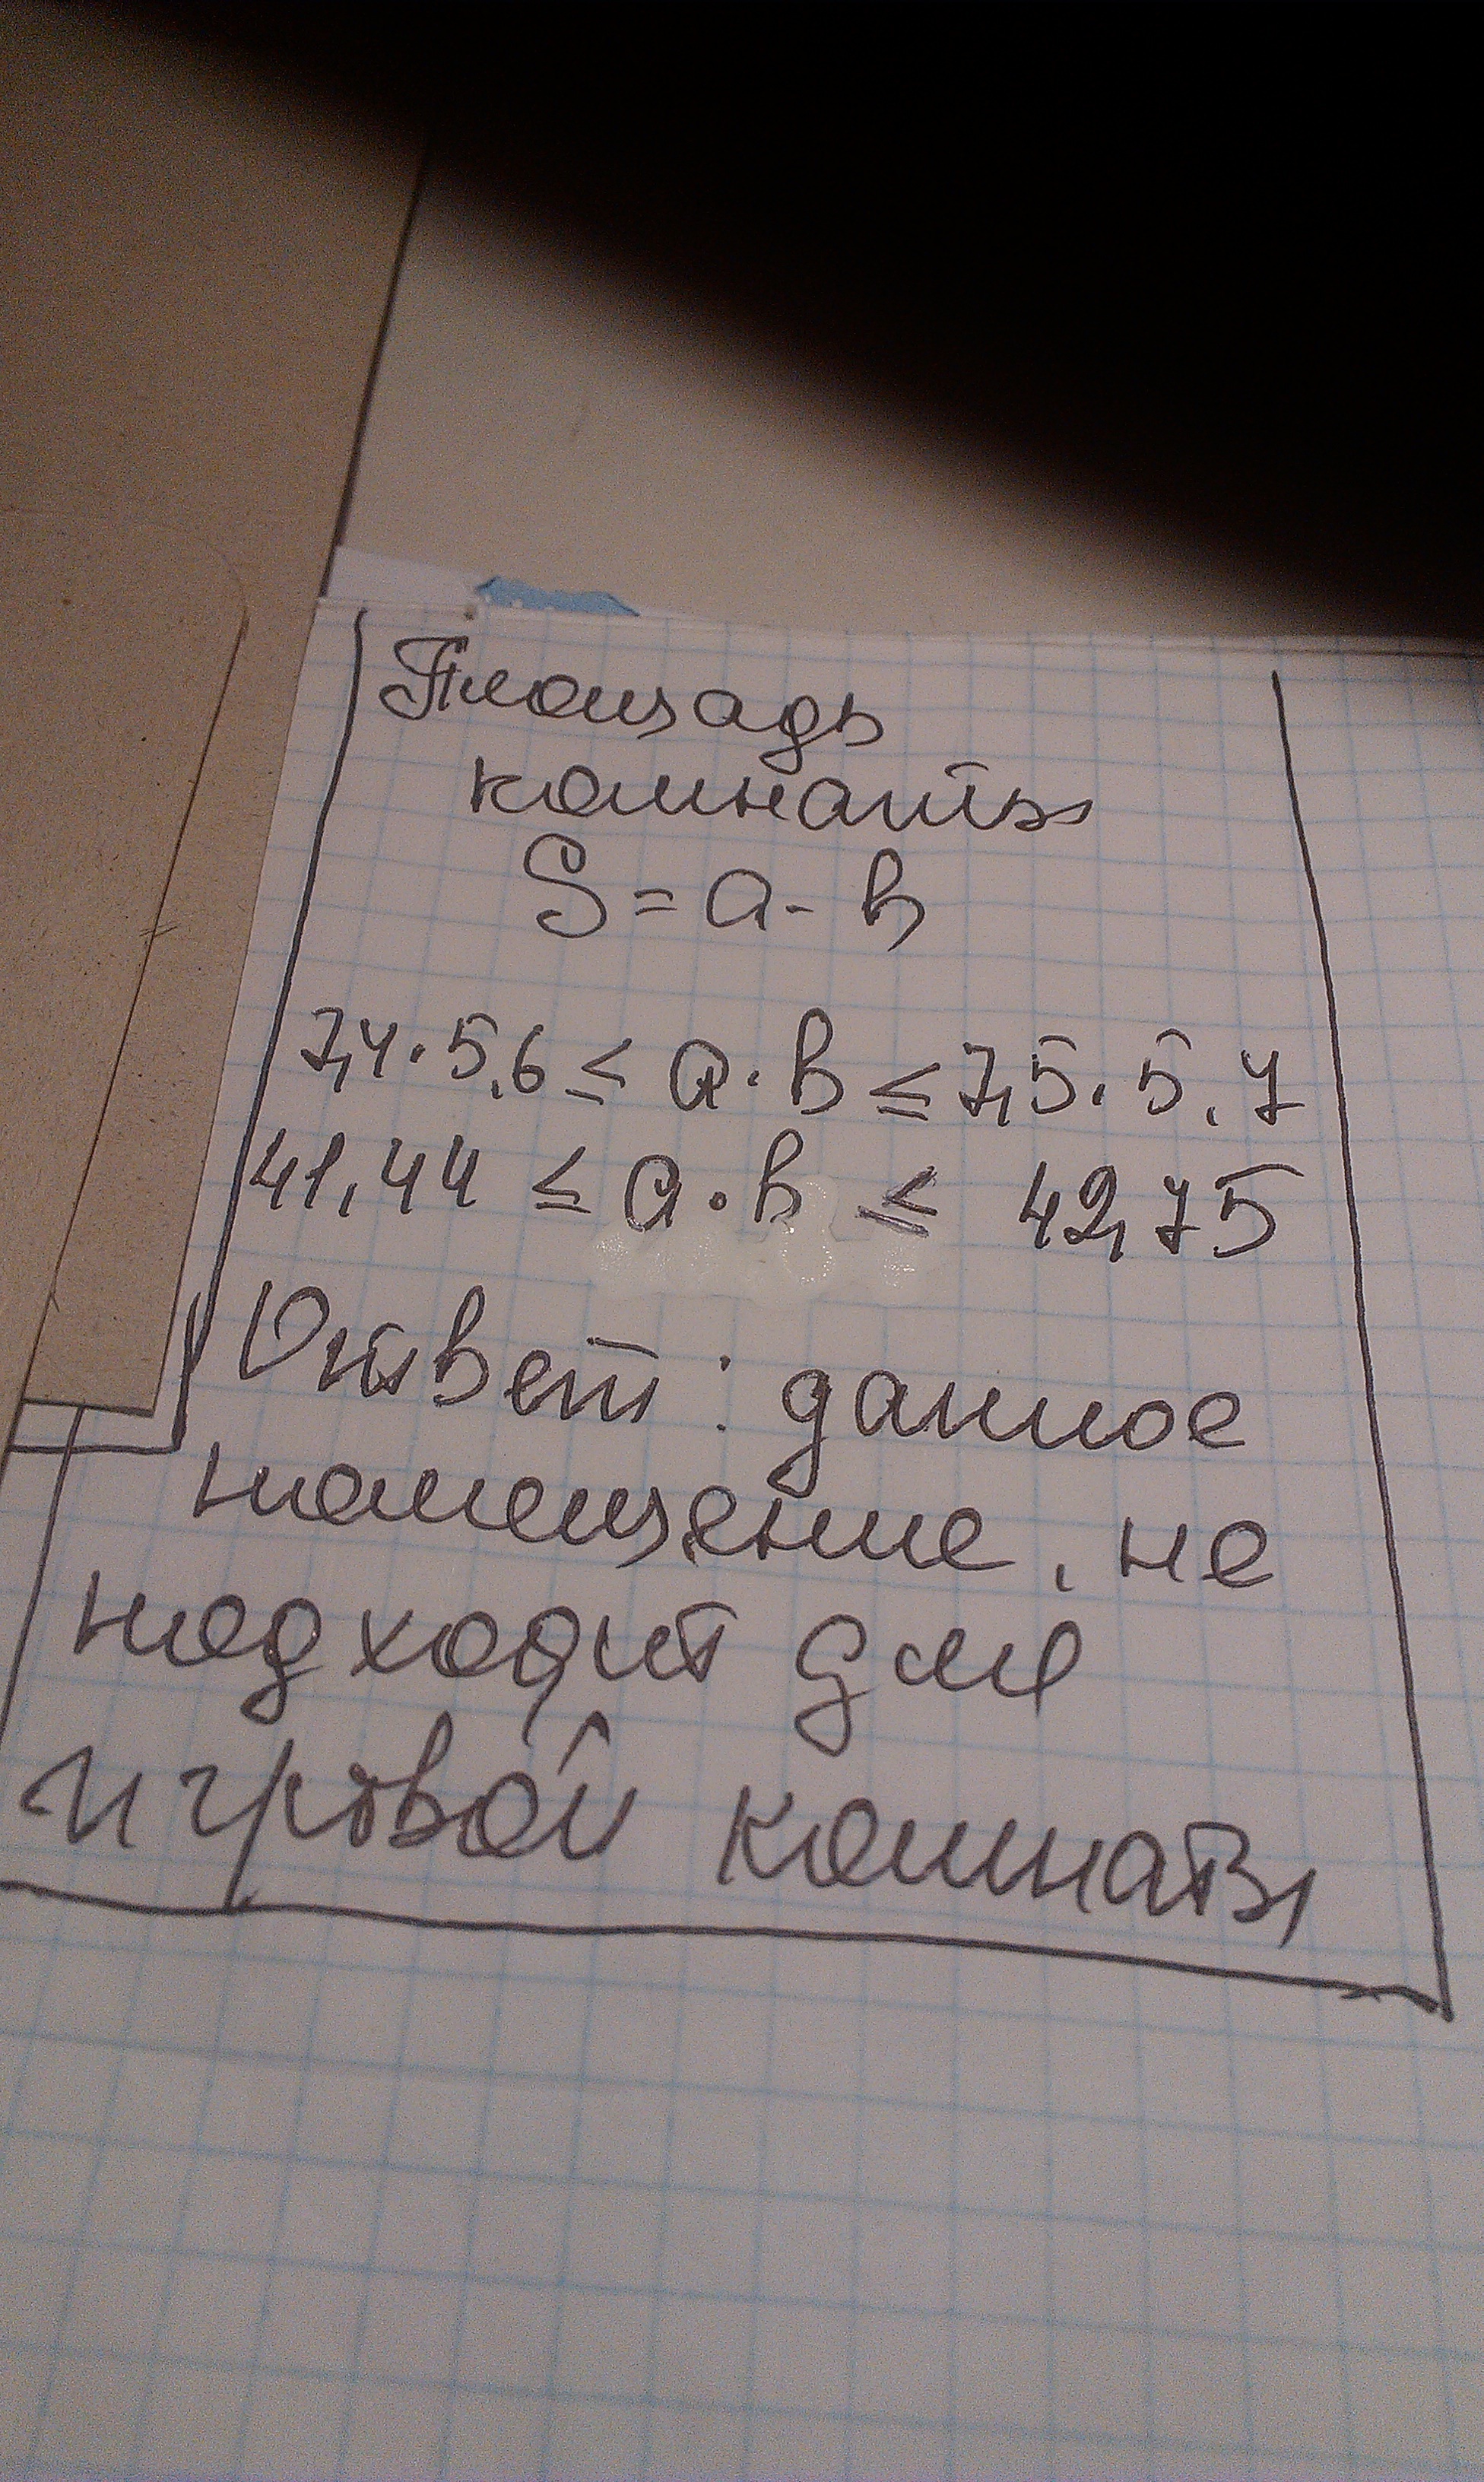 Площадь
комнаты
S = a · b
7,4 · 5,6 ≤ a · b ≤ 7,5 · 5,7
41,44 ≤ a · b ≤ 42,75
Ответ: данное
помещение, не
подходит для
игровой комнаты